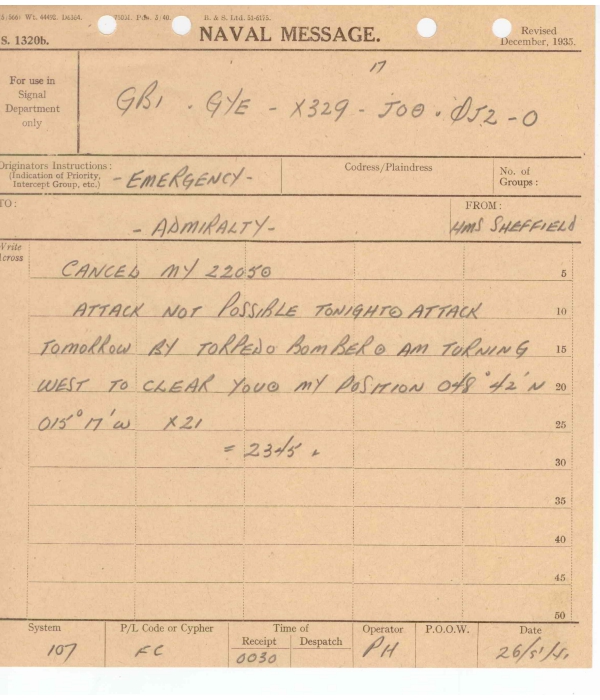 NAVAL MESSAGE.
S. 1320b.
Revised
December, 1935.
For use in
Signal
Department
only
17
GB1 . GYE - X329 - J00 . 0J2 - 0
Originators Instructions:
(Indication of Priority,
Intercept Group, etc.)
- EMERGENCY -
Codress/Plaindress
No. of
Groups:
TO:
FROM:
- ADMIRALTY -
HMS SHEFFIELD
Write
Across
CANCEL MY 22050
5
ATTACK NOT POSSIBLE TONIGHT⊙ ATTACK
10
TOMORROW BY TORPEDO BOMBER⊙ AM TURNING
15
WEST TO CLEAR YOU⊙ MY POSITION 048° 42' N
20
015° 17' W X21
25
= 2345 .
30
35
40
45
50
System
P/L Code or Cypher
Time of
Receipt
Despatch
Operator
P.O.O.W.
Date
107
FC
0030
PH
26/5/41